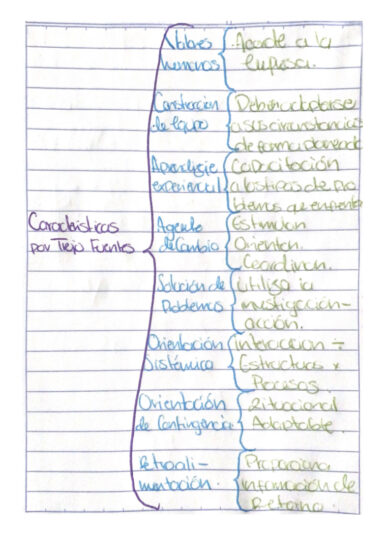 Características
por Trejo Fuentes
Valores
humanos
Acorde a la
Empresa.
Construcción
de Equipo
Deben adaptarse
a sus circunstancias
de forma
Aprendizaje
experiencial
Capacitación
a los tipos de pro
blemas que enfrenta
Agente
de Cambio
Estimulan
Orienten.
Coordinan.
Solución de
Problemas
Utiliza la
investigación-
acción.
Orientación
Sistémica
Interacción ÷
Estructuras x
Procesos.
Orientación
de Contingencia
Situacional
Adaptable.
Retroali-
mentación.
Proporciona
información de
Retorno.